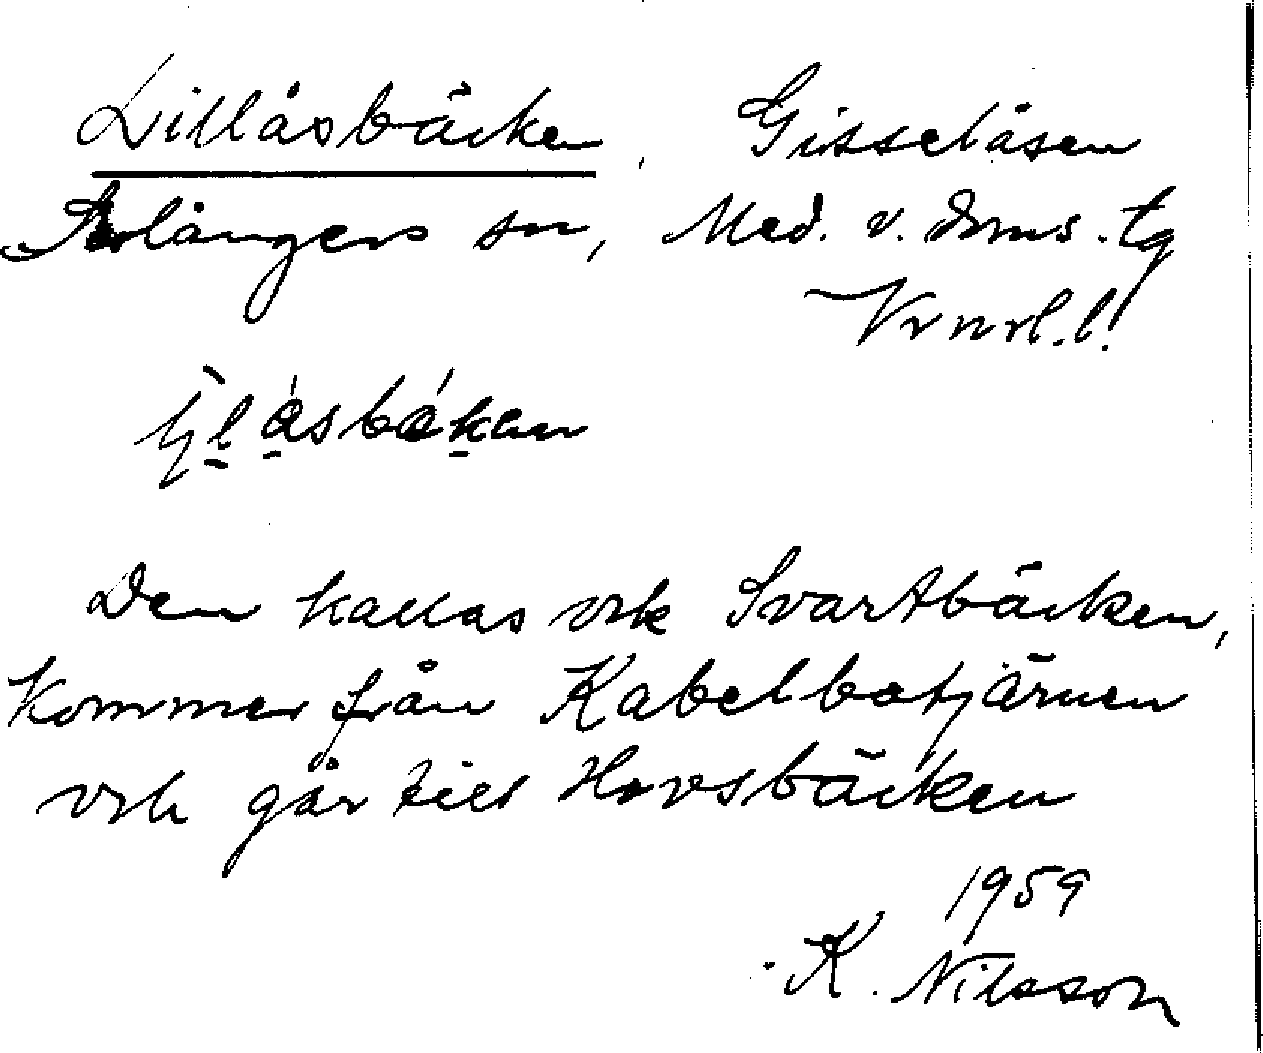 Lillåsbäcken, Gisselåsen
Selångers sn, Med. v. Dms. tg
Vrnrl.l!
Den kallas ock Svartbäcken,
kommer från Kabelbotjärnen
och går till Hovsbäcken
1959
K. Nilsson